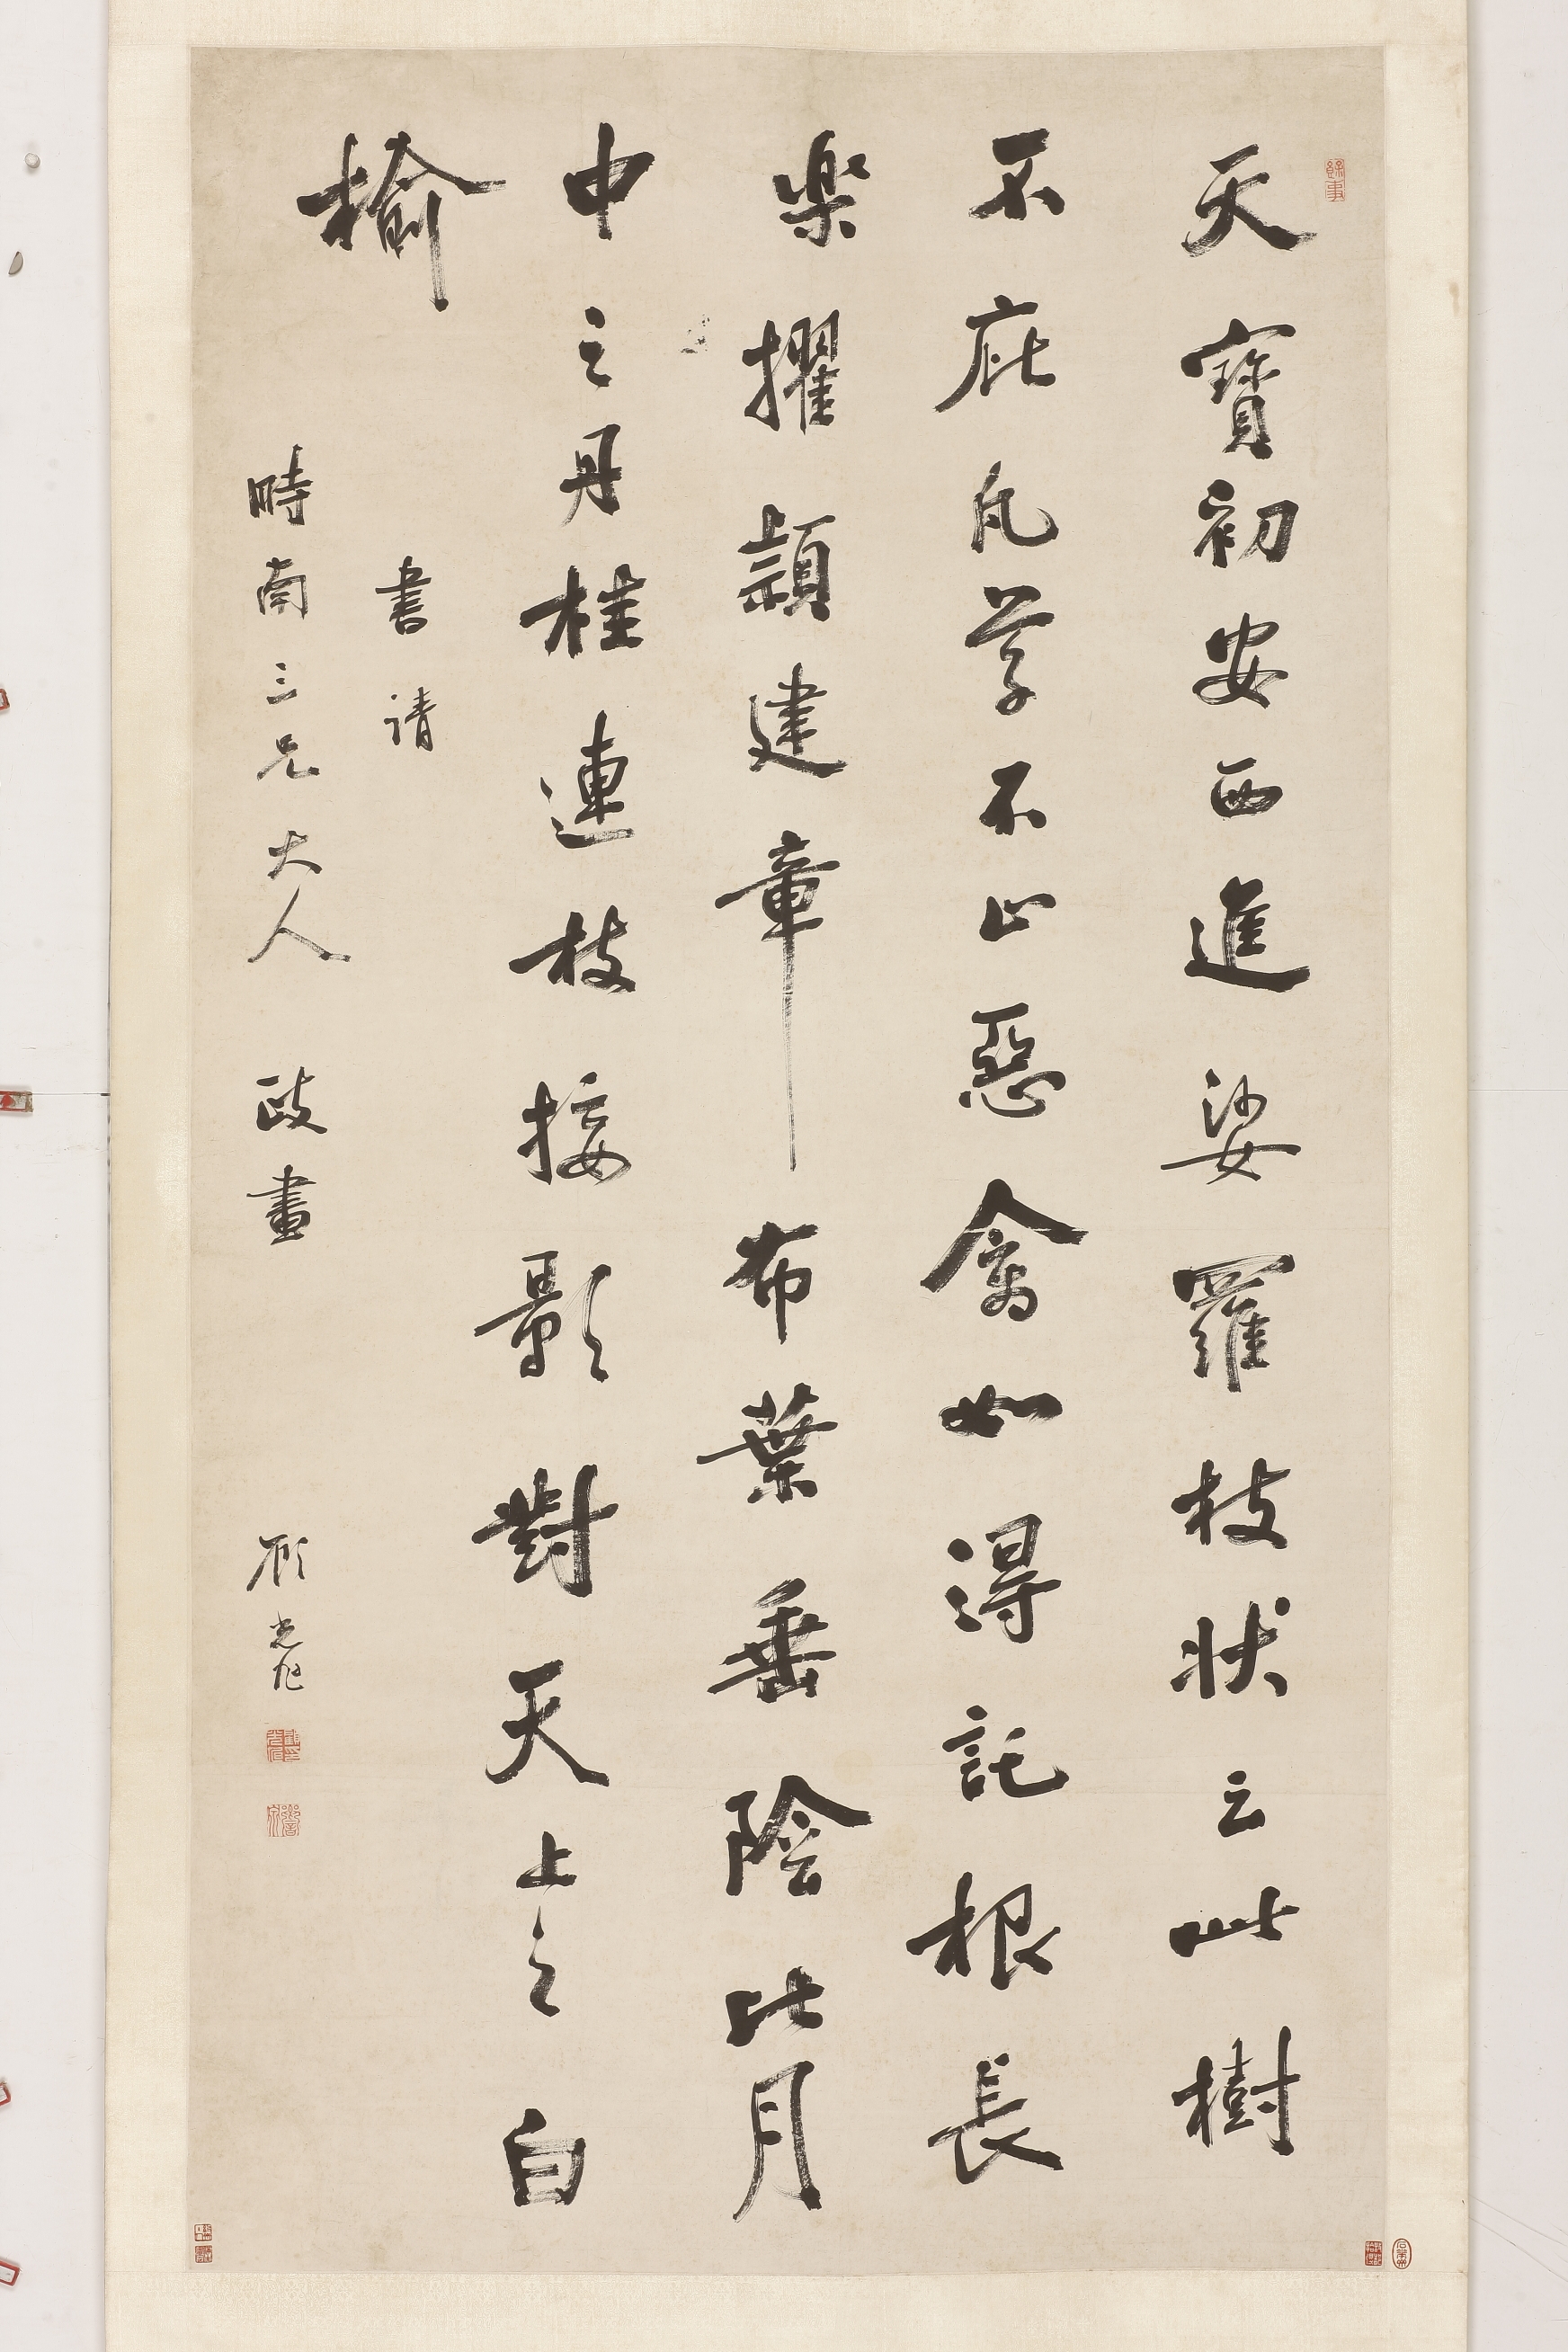 天寶初安西進娑羅枝狀云此樹
不庇凡草不止惡禽如得託根長
樂擢頴建章布葉垂陰比月
中之丹桂連枝接影對天上之白
榆
書請
時南三兄大人 政畫
顧光旭